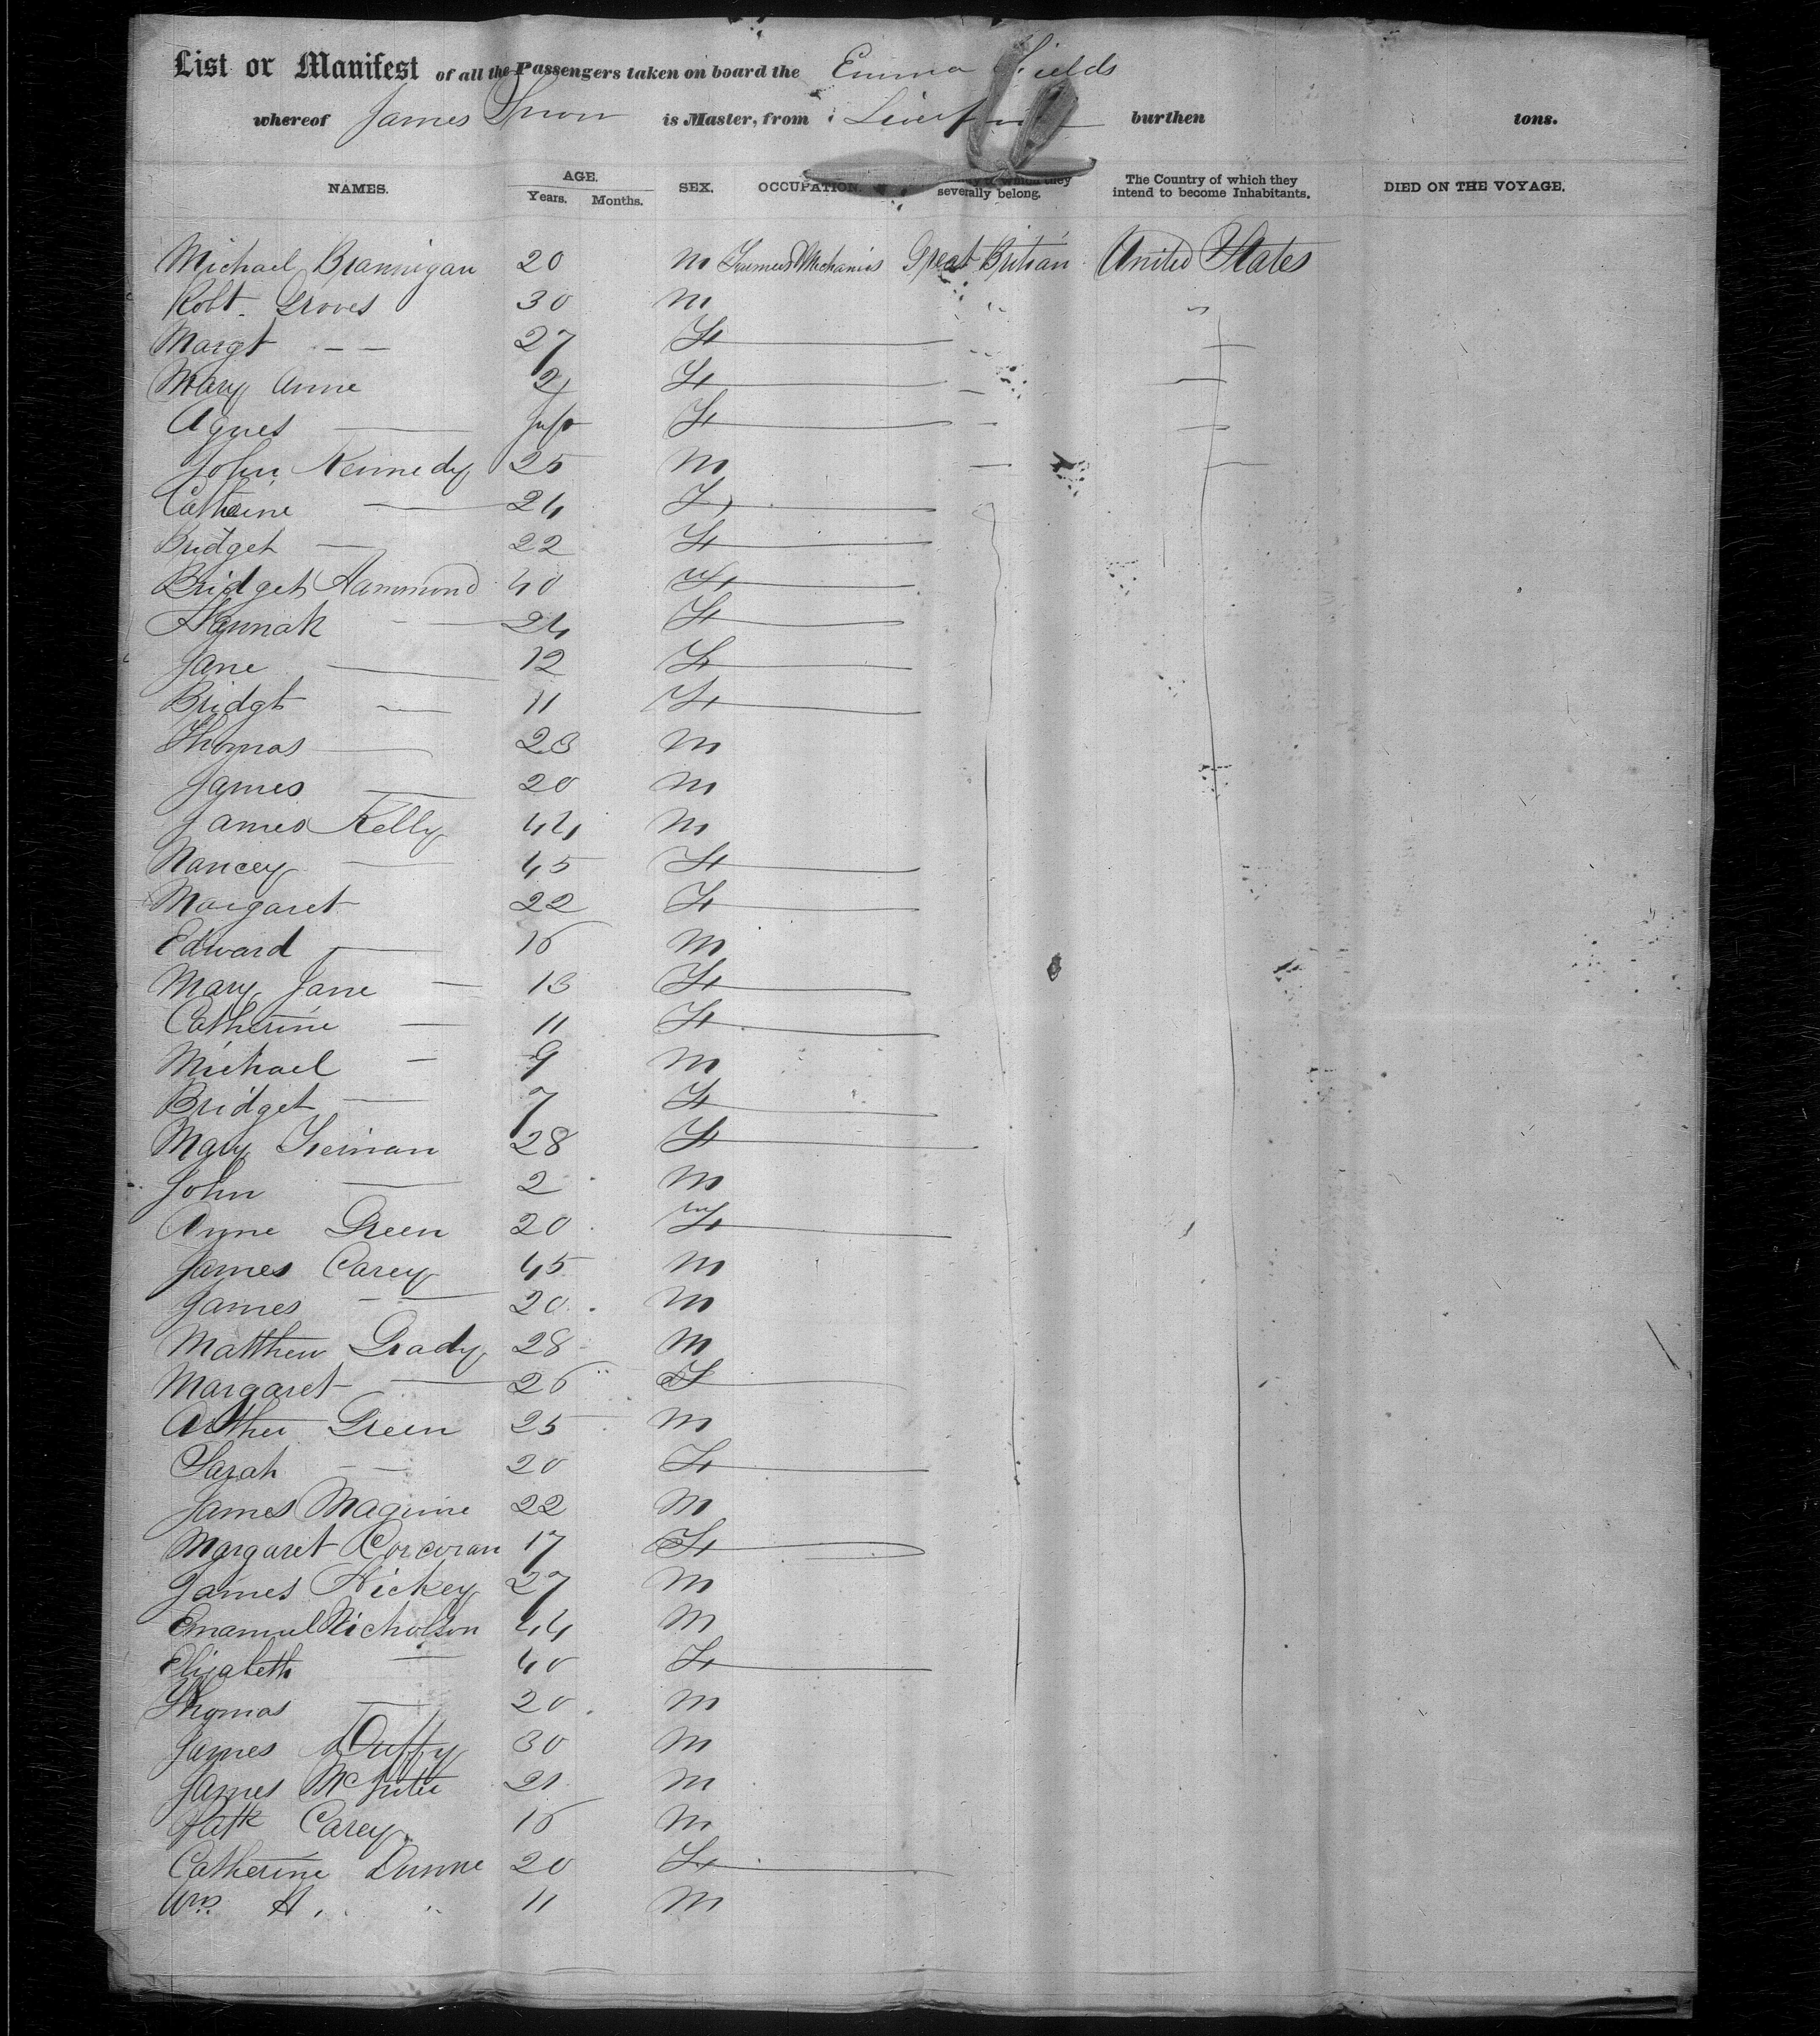 List or Manifest of all the Passengers taken on board the Emma Fields
whereof James Snow is Master, from Liverpool burthen tons.
NAMES. AGE. Years. Months. SEX. OCCUPATION. which they severally belong. The Country of which they intend to become Inhabitants. DIED ON THE VOYAGE.
Michael Brannigan 20 M Farmers & Mechanics Great Britian United States
Robt. Groves 30 M
Margt — — 27 F
Mary Anne 2 F
Agnes — Inft F
John Kennedy 25 M
Catherine — 24 F
Bridget — 22 F
Bridget Hammond 40 F
Hannah — 24 F
Jane — 12 F
Bridgt — 11 F
Thomas — 23 M
James — 20 M
James Kelly 44 M
Nancey — 45 F
Margaret 22 F
Edward — 16 M
Mary Jane — 13 F
Catherine — 11 F
Michael — 9 M
Bridget — 7 F
Mary 28 F
John — 2 M
Anne Green 20 F
James Carey 45 M
James — 20 M
Matthew Grady 28 M
Margaret — 26 F
Arther Green 25 M
Sarah — 20 F
James Maguire 22 M
Margaret Corcoran 17 F
James Hickey 27 M
Emanuel Nicholson 44 M
Elizabeth — 40 F
Thomas — 20 M
James Duffy 30 M
James 21 M
Patk Carey 16 M
Catherine Dunne 20 F
Wm. H. " 11 M